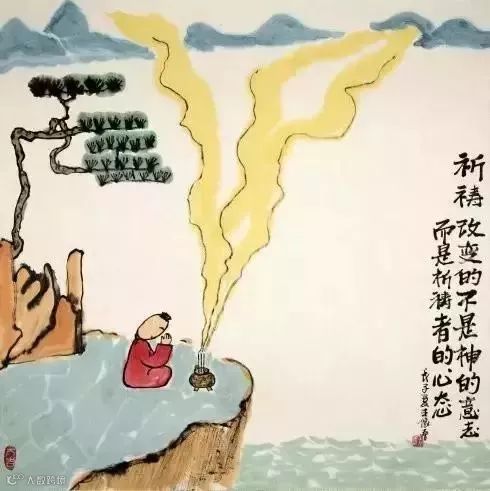 祈祷改变的不是神的意志
而是祈祷者的心态
戊子夏
大数跨境